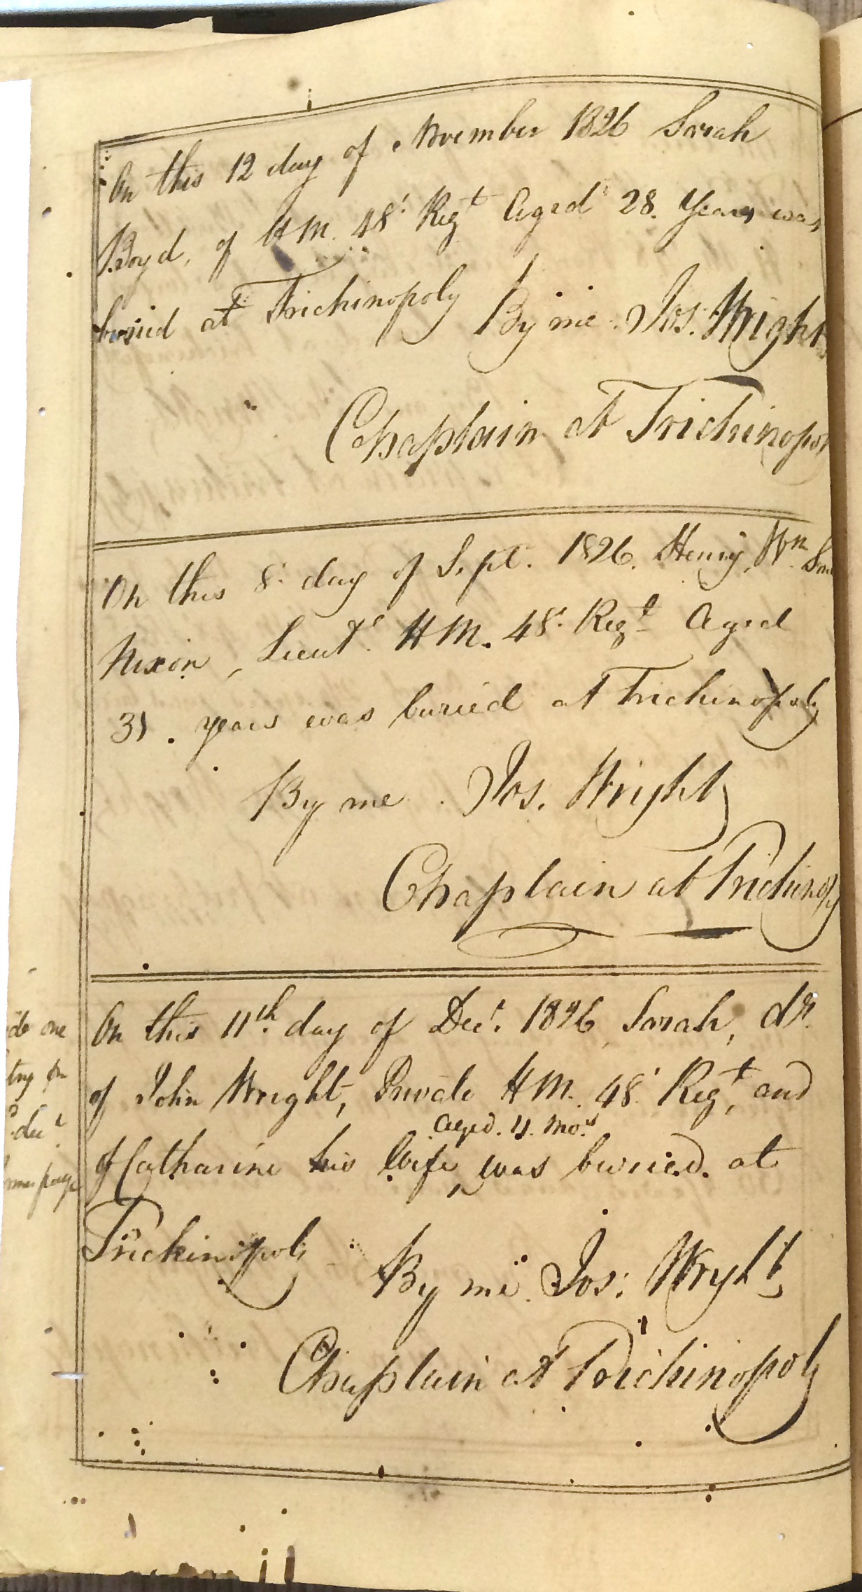 On this 12 day of November 1826 Sarah
Boyd, of H.M. 48th Regt Aged 28 Years was
buried at Trichinopoly By me Jos. Wright
Chaplain at Trichinopol
On this 8 day of Sept. 1826. Henry Wm
Nixon, Lieut. H.M. 48 Regt Aged
31. years was buried at Trichinopoly
By me Jos. Wright
Chaplain at Trichinopoly
On this 11th day of Decr. 1826 Sarah, dr.
of John Wright, Private H.M. 48 Regt, and
aged 4 Mos
of Catharine his Wife, was buried at
Trichinopoly By me Jos. Wright
Chaplain at Trichinopoly